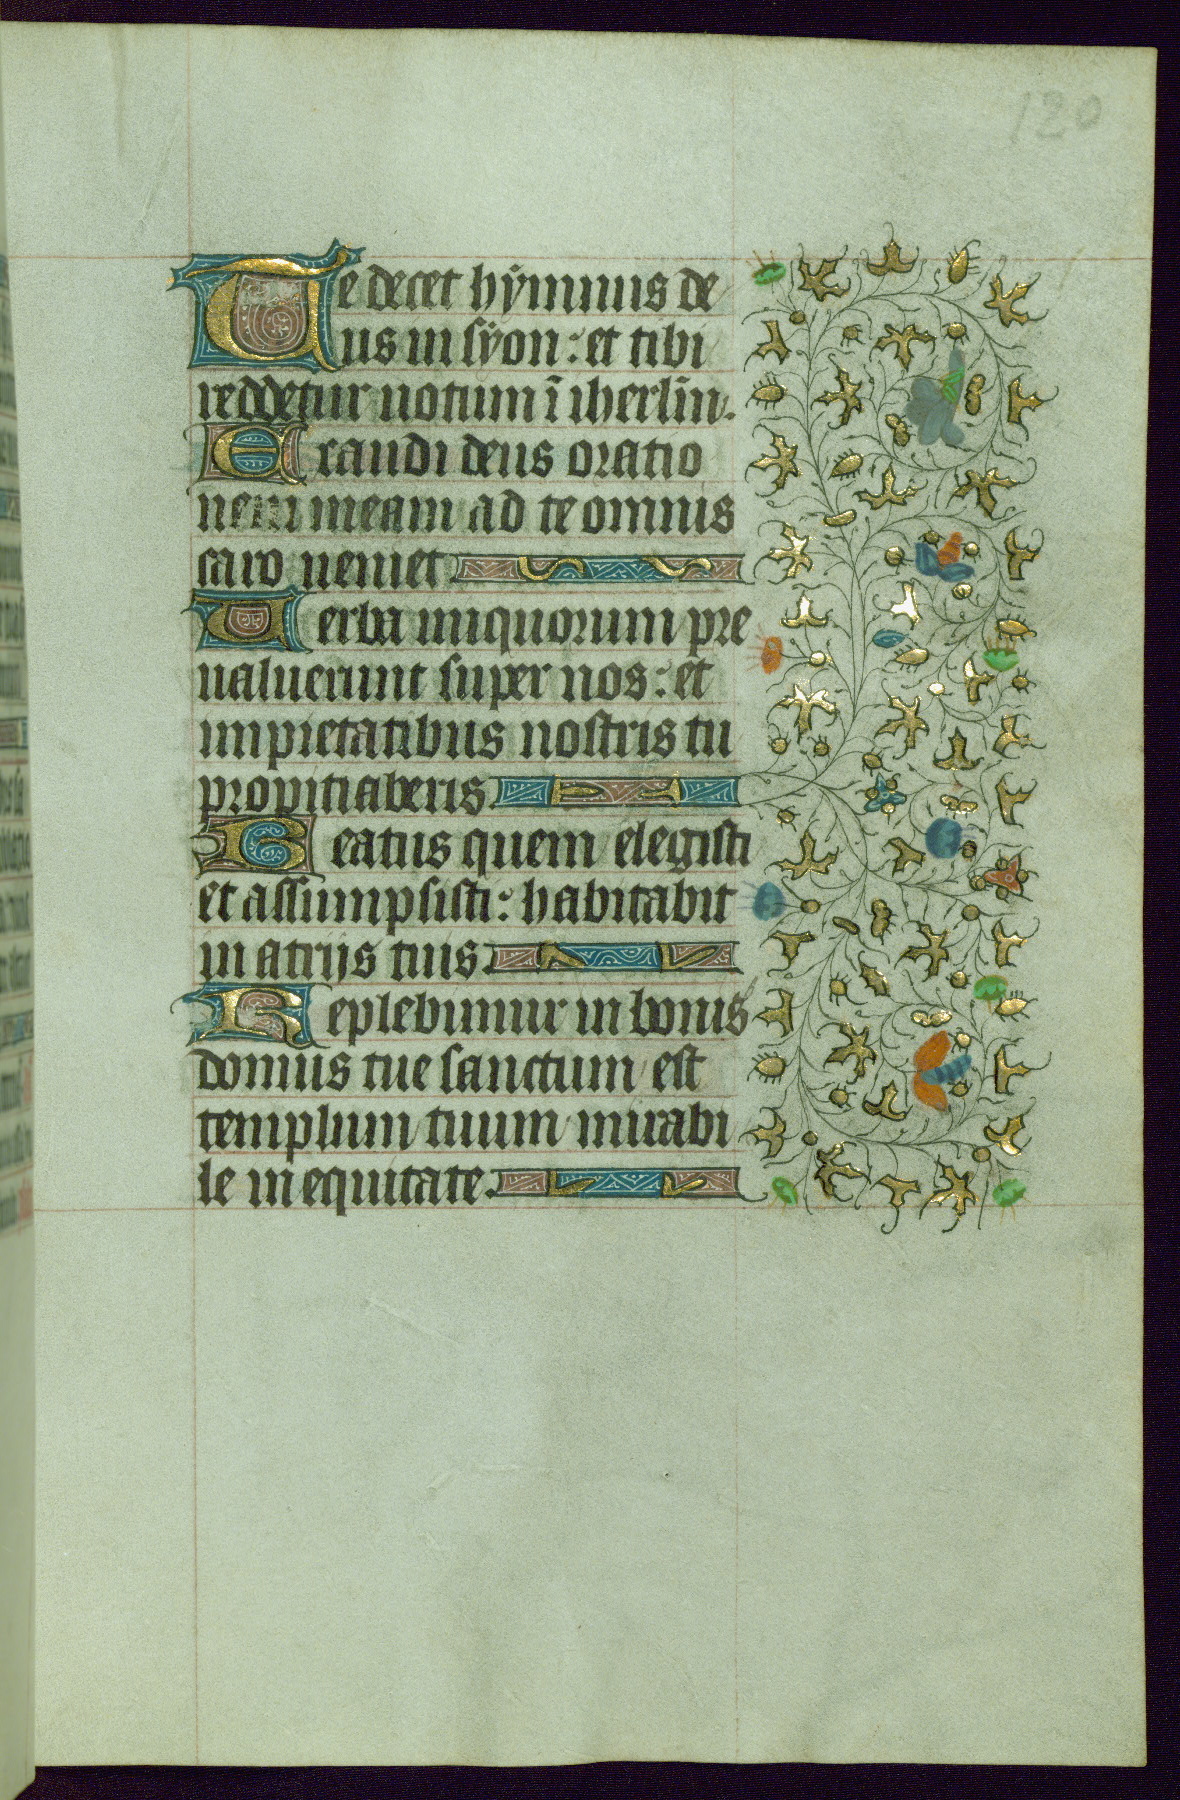 120
Te decet hymnus de
us in syon: et tibi
reddetur uotum ī iherlm̄.
Exaudi deus oratio
nem meam ad te omnis
caro ueniet
Uerba iniquorum pre
ualuerunt super nos: et
impietatibus nostris tu
propitiaberis
Beatus quem elegisti
et assumpsisti: habitabit
in atrijs tuis
Replebimur in bonis
domus tue sanctum est
templum tuum mirabi
le in equitate.